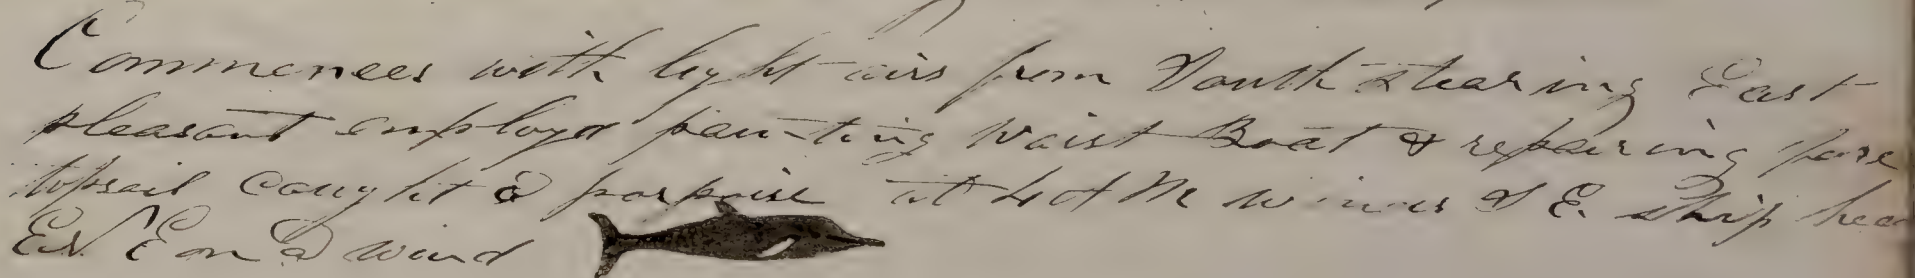 Commences with light airs from South stearing East
pleasant employd painting Waist Boat & repairing fore
topsail caught a porpoise at 4 A M winds S E. Ship hea
E N E on a wind